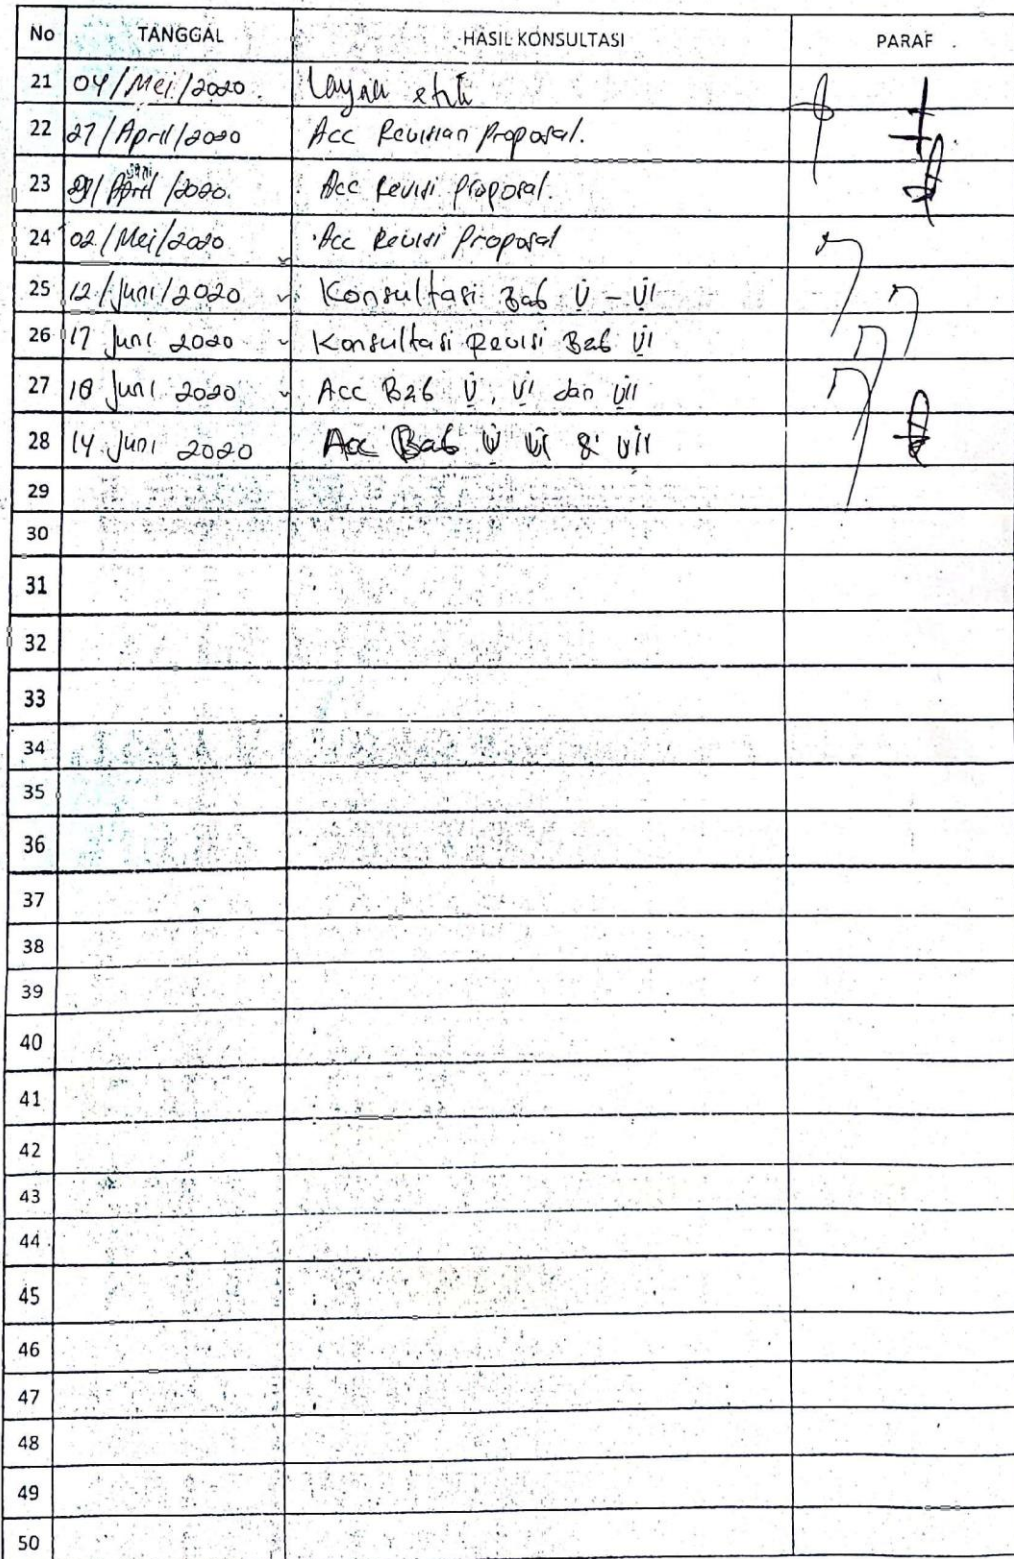 No TANGGAL HASIL KONSULTASI PARAF
21 04/Mei/2020. Layak etik
22 27/April/2020 Acc Revisian Proposal.
23 /2020. Acc Revisi Proposal.
24 02/Mei/2020 Acc Revisi Proposal
25 12/Juni/2020 Konsultasi Bab V - VI
26 17 Juni 2020 Konsultasi Revisi Bab VI
27 18 Juni 2020 Acc Bab V, VI dan VII
28 14 Juni 2020 Acc Bab V VI & VII
29
30
31
32
33
34
35
36
37
38
39
40
41
42
43
44
45
46
47
48
49
50